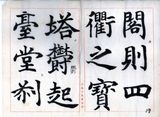 閣則四
衢之寶
塔欝起
臺堂刹